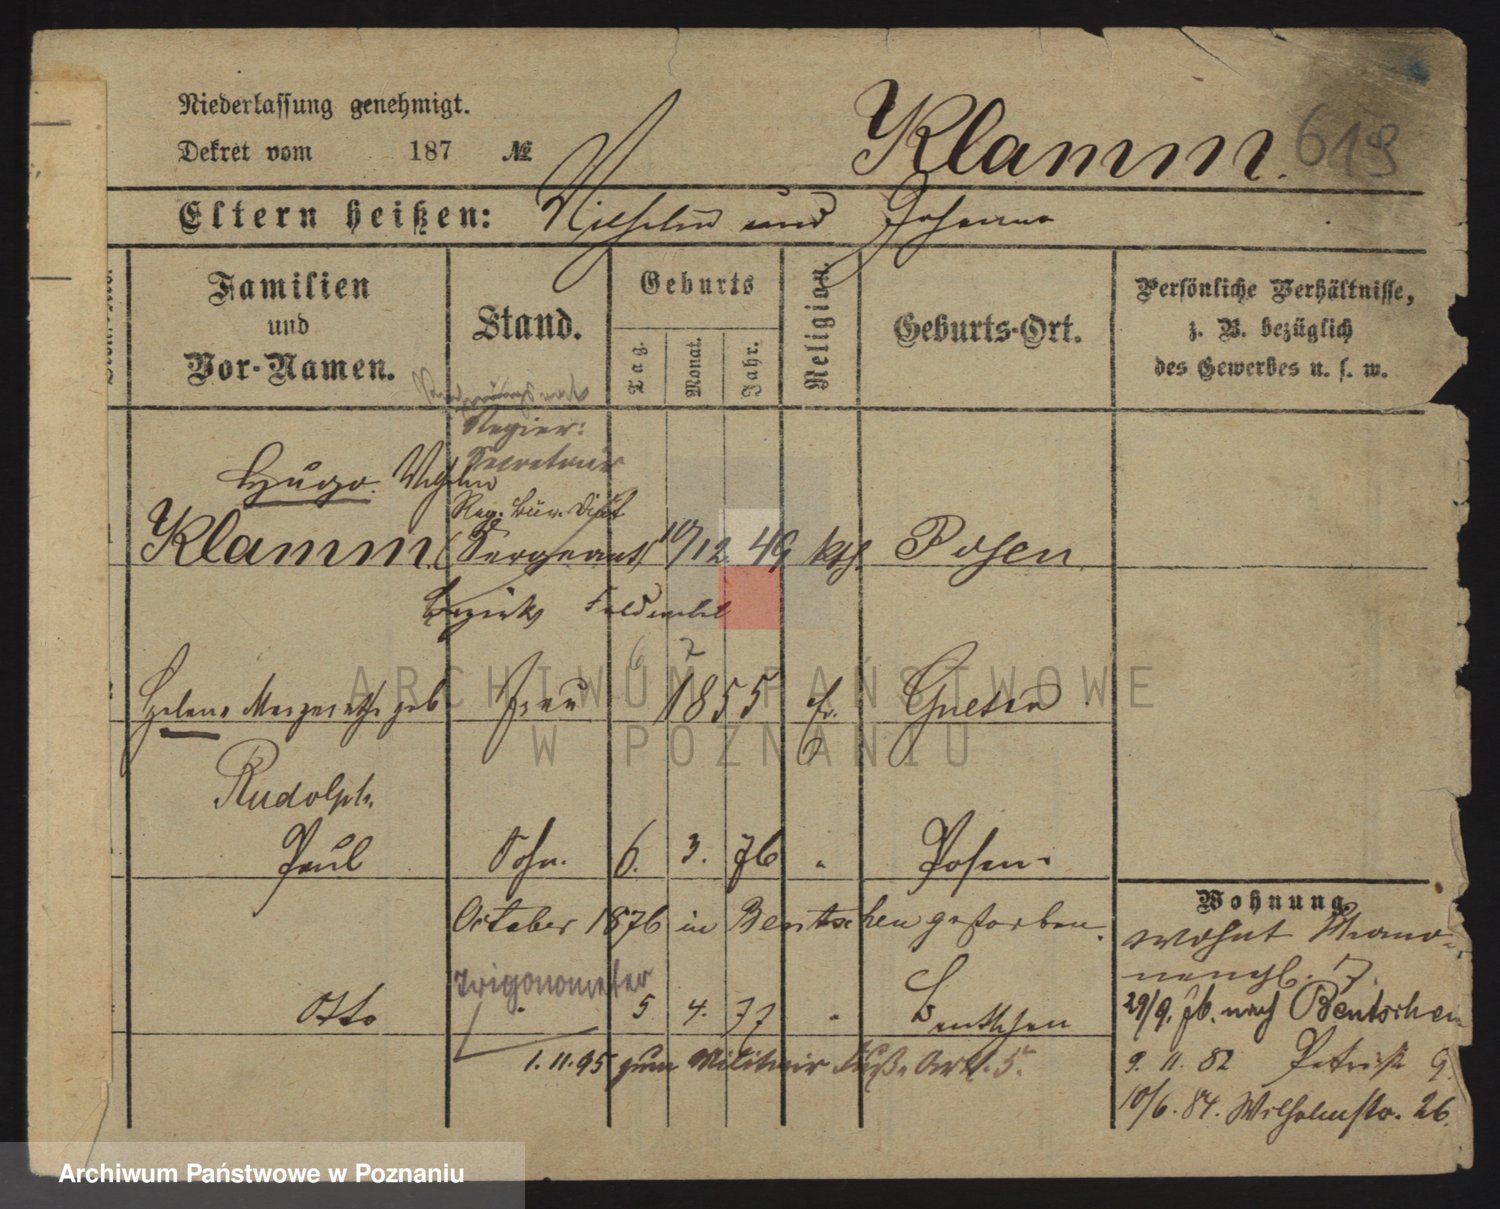 Niederlassung genehmigt.
Dekret vom 187 №
Klamm. 619
Eltern heißen: Wilhelm und Johanna
Familien und Vor-Namen.
Stand.
Geburts
Tag. Monat. Jahr.
Religion.
Geburts-Ort.
Persönliche Verhältnisse,
z. B. bezüglich
des Gewerbes u. s. w.
Regier:
Secretair
Hugo. Wilhelm
Reg. Bür. Diät
Klamm. (Sergeant) 10/12 49 kth. Posen
Bezirks Feldwebel
6 7
Helene Margarethe geb Frau 1855 Gnesen
Rudolph.
Paul Sohn. 6. 3. 76 " Posen.
October 1876 in Bentschen gestorben.
Trigonometer
Otto " 5 4. 77 " Bentschen
1.11.95 zum Militair Fuß. Art. 5.
Wohnung.
wohnt
29/9. 76. nach Bentschen
9. 11. 82
10/6. 84. Wilhelmstr. 26.
ARCHIWUM PAŃSTWOWE
W POZNANIU
Archiwum Państwowe w Poznaniu